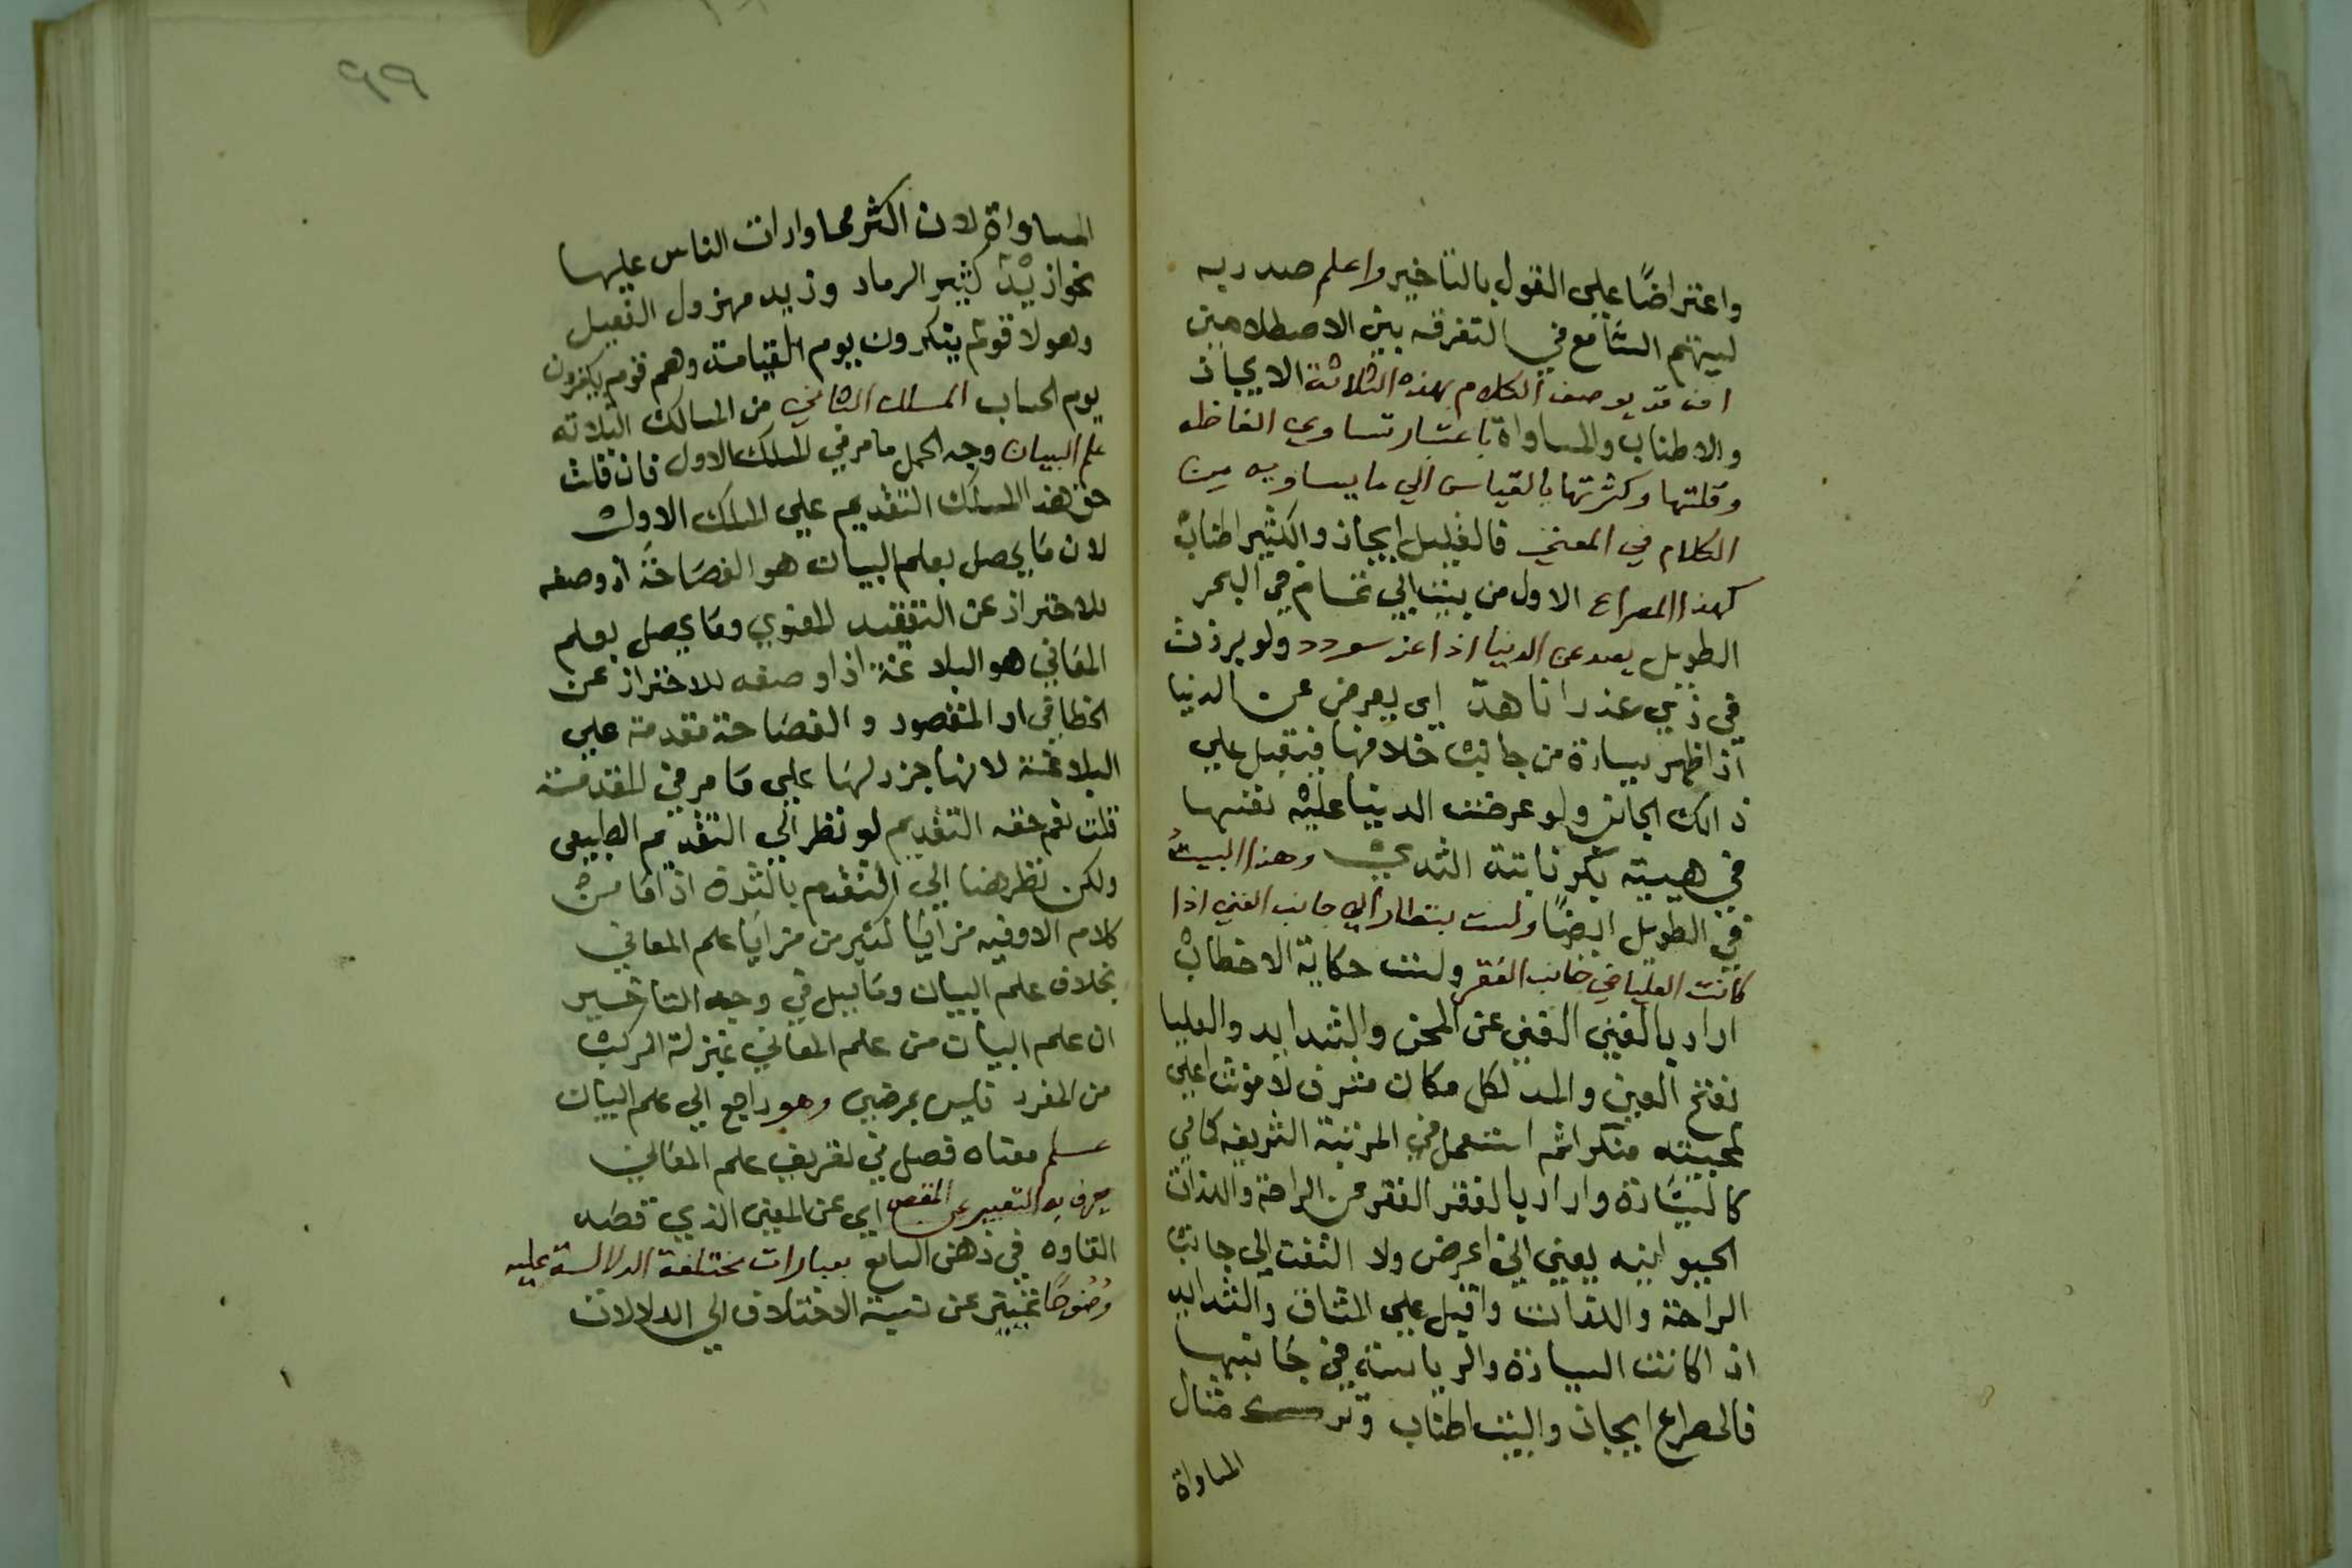 واعتراضًا علي القول بالتاخير واعلم صدر به
ليتهم السَّامع في التفرقه بين الاصطلاحين
انه قد يوصف الكلام بهذه الثلاثة الايجاز
والاطناب والمساواة باعتبار تساوي الفاظه
وقلتها وكثرتها بالقياس الي ما يساويه من
الكلام في المعني فالقليل ايجاز والكثير اطناب
كهذا المصراع الاول من بيت ابي تمام في البحر
الطويل يصد عن الدنيا اذا عن سودد ولو برزت
في زي عذرا ناهد اي يعرض عن الدنيا
اذا ظهر سيادة من جانب خلافها فيقبل علي
ذالك الجانب ولو عرضت الدينا عليه نفسها
في هيية بكر ناتئة الثدي وهذا البيت
في الطويل ايضًا ولست بنظار الي جانب الغني اذا
كانت العليا في جانب الفقر ولست حكاية الاخطاب
اراد بالغني الغني عن المحن والشدايد والعليا
بفتح العين والمد لكل مكان مشرف لا مونث اعلي
لمجيئه منكرا ثم استعمل في المرتبة الشريفه كما في
كالسَّيادة واراد بالفقر الفقر من الراحة واللذات
الحيوانيه يعني اني اعرض ولا التفت الي جانب
الراحة واللذات واقبل علي المشاق والشدايد
اذا كانت السيادة والرياسة في جَانبها
فالمصراع ايجاز والبيت اطناب وترك مثال
المساواة
٩٩
المساواة لان اكثر محاوارات الناس عليها
نحو ازيد كثير الرماد وزيد مهزول الفصيل
وهولا قوم ينكرون يوم القيامة وهم قوم يكفرون
يوم الحساب المسلك الثاني من المسالك الثلاثه
علم البيان وجه الحمل ما مر في المسلك الاول فان قلت
حق هذا المسلك التقديم علي المسلك الاول
لان مَا يحصل بعلم البيان هو الفصَاحَة اذ وصفه
للاحتراز عن التعقيد المعنوي ومَا يحصل بعلم
المعَاني هو البلاغة اذ اوصفه للاحتراز عن
الخطا في اد المقصود والفصَاحة مقدمة علي
البلاغة لانها جزء لهَا علي مَا مر في المقدمة
قلت نعم حقه التقديم لو نظر الي التقديم الطبيعي
ولكن نظر هنا الي التقدم بالشرة اذ مَا من
كلام الا وفيه مزايَا كثير من مزايَا علم المعاني
بخلاف علم البيان ومَا قيل في وجه التاخير
ان علم البيان من علم المعاني بمنزلة المركب
من المفرد فليس بمرضي وهو راجع الي علم البيان
علم معناه فصل في تعريف علم المعَاني
يعرف به التعبير عن المقصد اي عن المعني الذي قصَد
القاوه في ذهن السامع بعبارات مختلفة الدلالة عليه
وُضُوحًا تمييز عن نسبة الاختلاف الي الدلالات